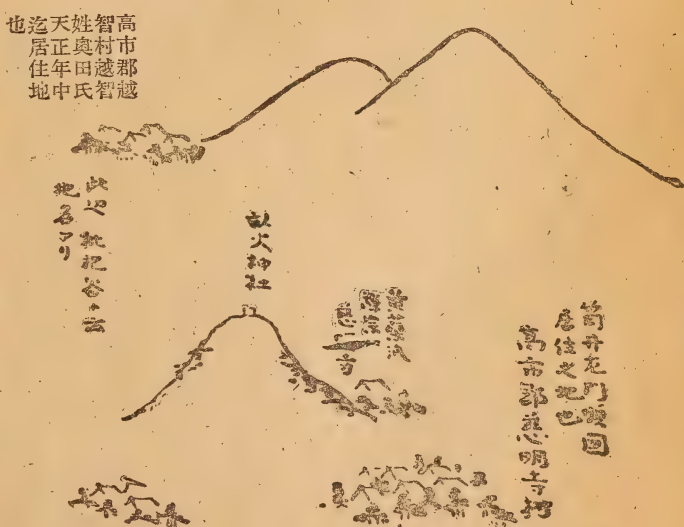 高市郡越
智村越智
姓奥田氏
天正年中
迄居住地
也
此辺枇杷谷ト云
地名アリ
畝火神社
筒井左門順国
居住之地也
高市郡慈明寺村